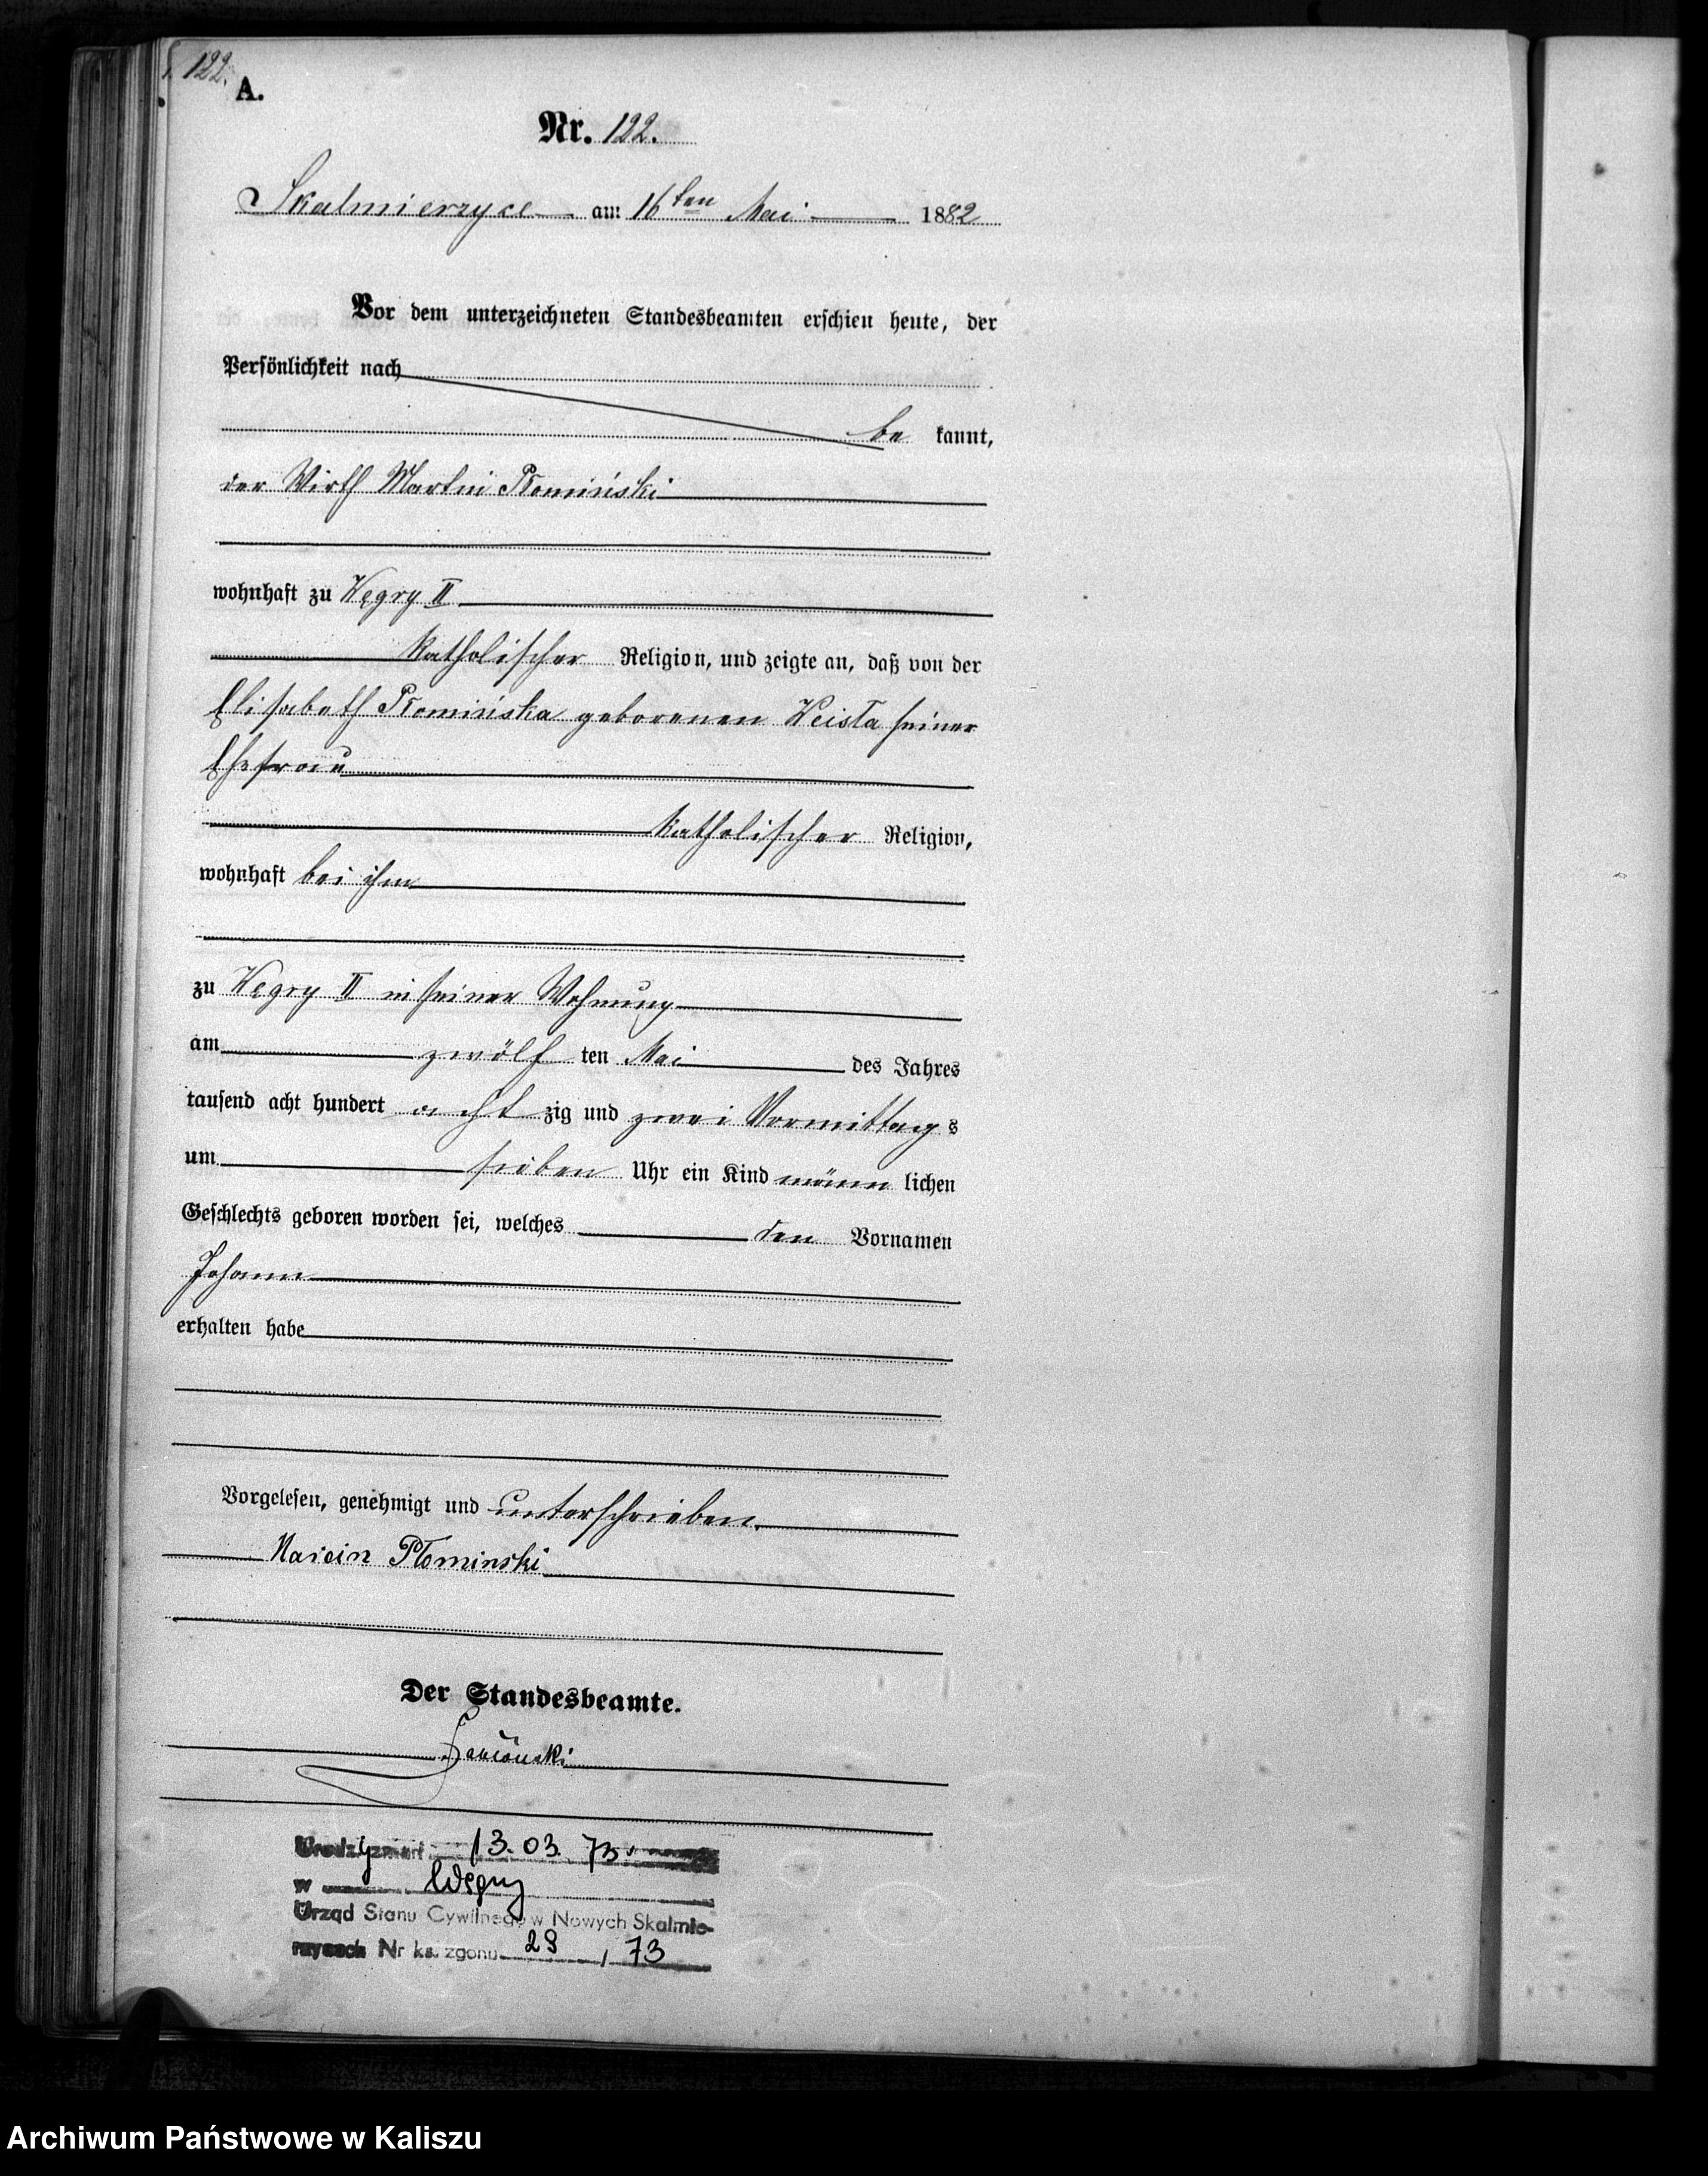 122.
A.
Nr. 122.
Skalmierzyce am 16ten Mai 1882
Vor dem unterzeichneten Standesbeamten erschien heute, der
Persönlichkeit nach
be kannt,
der Wirth Martin Płomiński
wohnhaft zu Węgry II
katholischer Religion, und zeigte an, daß von der
Elisabeth Płomińska geborenen Weista seiner
Ehefrau
katholischer Religion,
wohnhaft bei ihm
zu Węgry II in seiner Wohnung
am zwölf ten Mai des Jahres
tausend acht hundert acht zig und zwei Vormittag s
um sieben Uhr ein Kind männ lichen
Geschlechts geboren worden sei, welches den Vornamen
Johann
erhalten habe
Vorgelesen, genehmigt und unterschrieben.
Marcin Płominski
Der Standesbeamte.
13.03.73.
w Węgry
Urząd Stanu Cywilnego w Nowych Skalmie-
rzycach Nr ks. zgonu 28 / 73
Archiwum Państwowe w Kaliszu